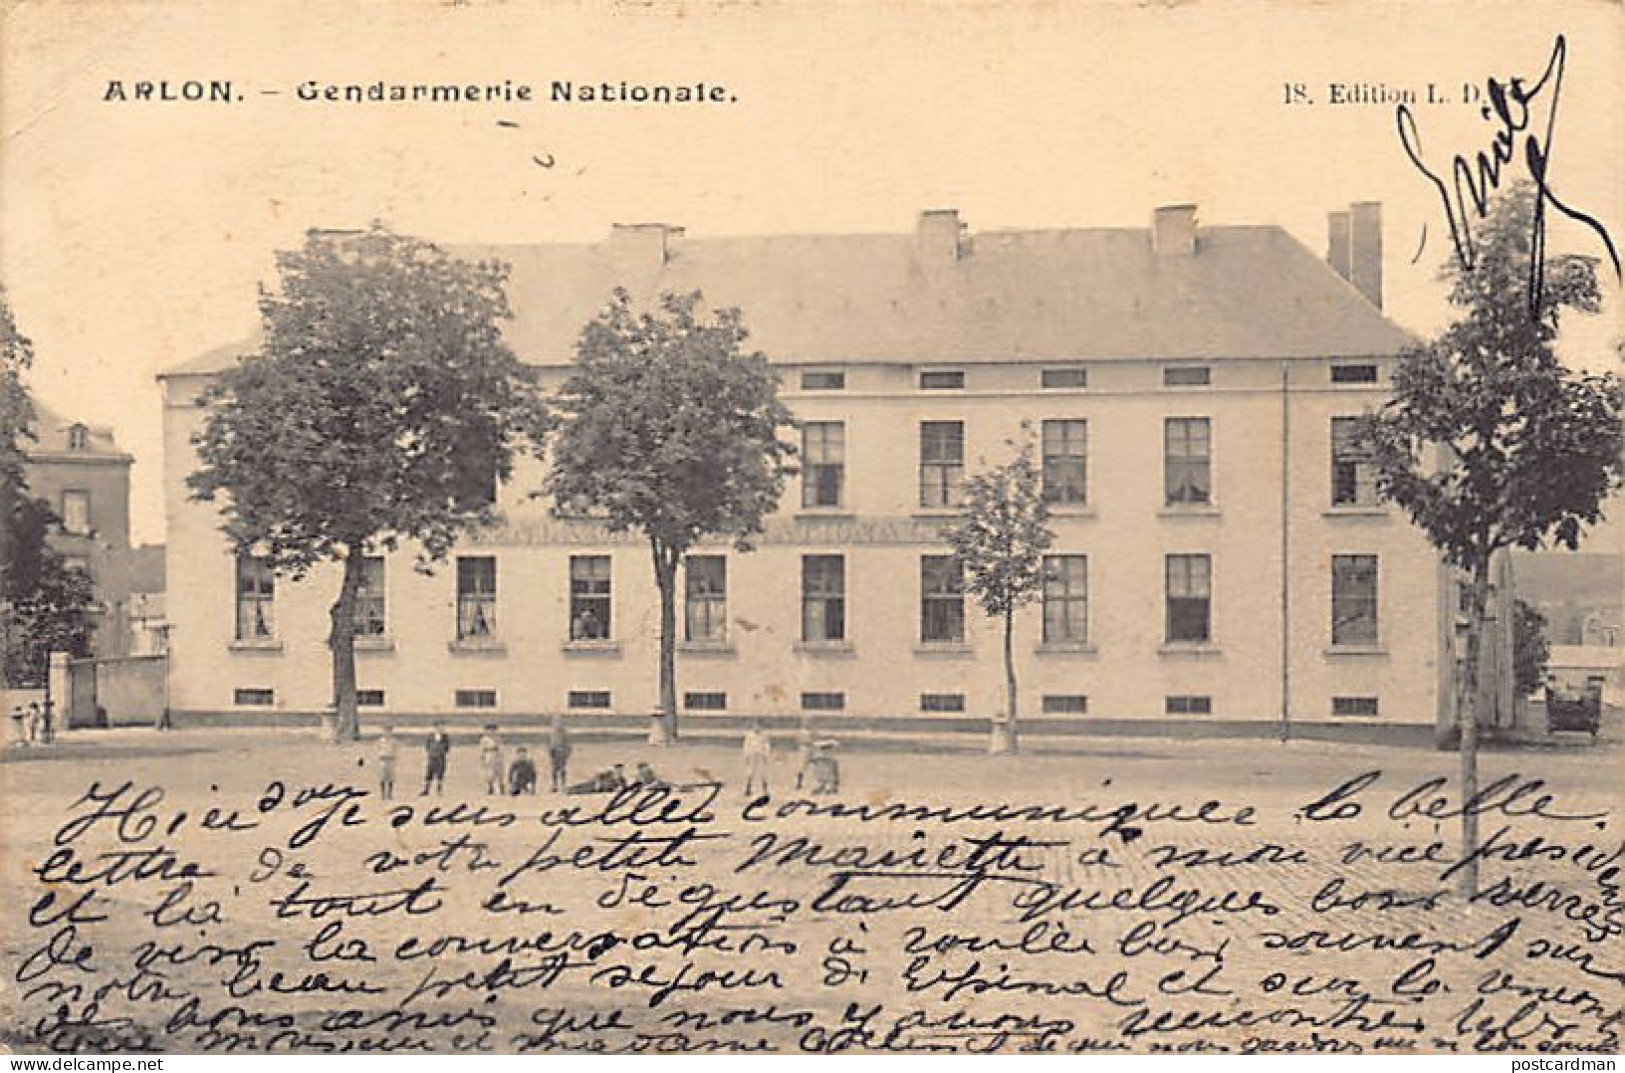 ARLON. - Gendarmerie Nationale.
18. Edition L. D.
Emile
Hier soir je suis aller communiquer la belle
lettre de votre petite Mariette à mon vice président
et la tout en dégustant quelques bons verres
de vins la conversations à roulée bois souvent sur
notre beau petit sejour d'Epinal et sur la rencont
des bons amis que nous y avons rencontrés tels
monsieur et madame de qui nous gardons un si bon
postcardman